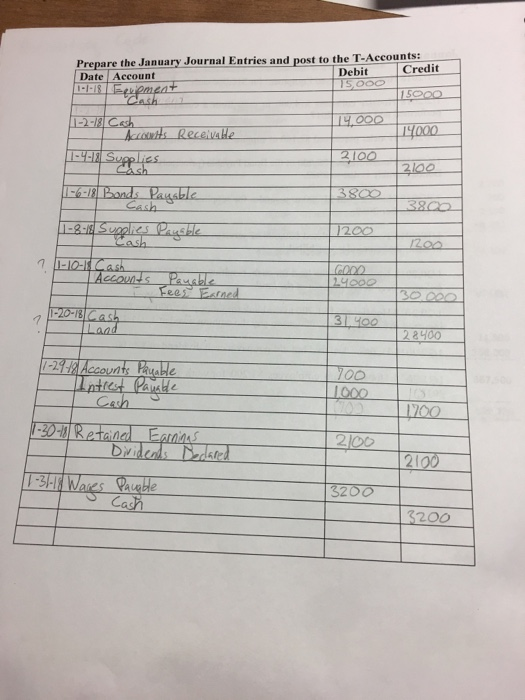 Prepare the January Journal Entries and post to the T-Accounts:
Date Account Debit Credit
1-1-18 Equipment 15,000
Cash 15000
1-2-18 Cash 14,000
Accounts Receivable 14000
1-4-18 Supplies 2,100
Cash 2100
1-6-18 Bonds Payable 3800
Cash 3800
1-8-18 Supplies Payable 1200
Cash 1200
? 1-10-18 Cash 6000
Accounts Payable 24000
Fees Earned 30 000
? 1-20-18 Cash 31,400
Land 28400
1-29-18 Accounts Payable 700
Intrest Payable 1000
Cash 1700
1-30-18 Retained Earnings 2100
Dividends Declared 2100
1-31-18 Wages Payable 3200
Cash 3200